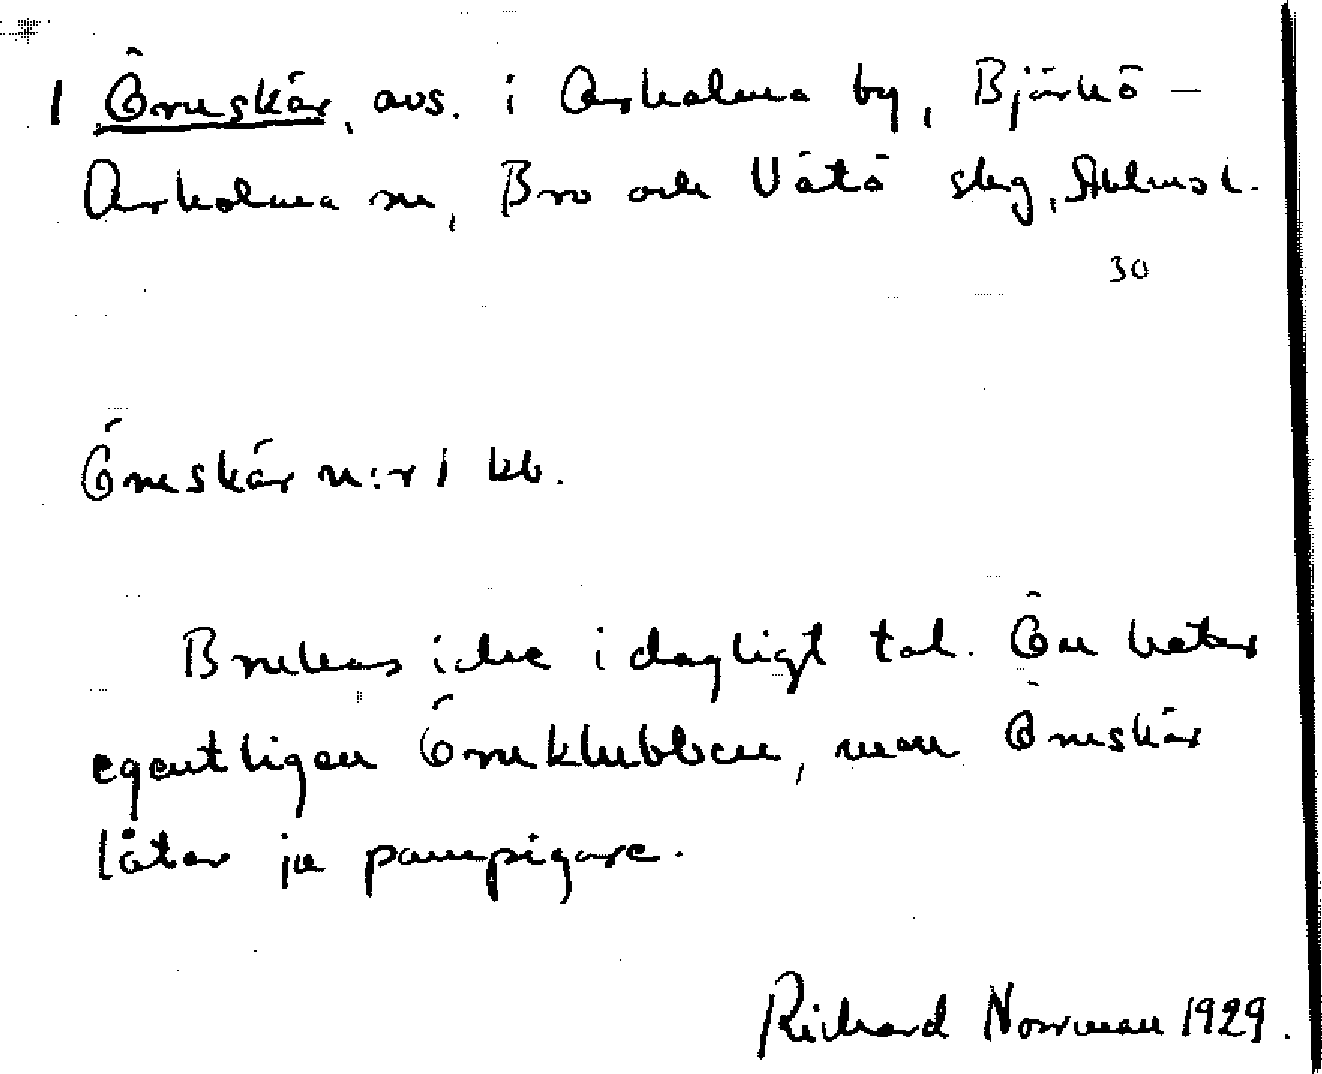 1 Örneskär, avs. i Arholma by, Björkö –
Arholma sn, Bro och Vätö skg, Sthlms l.
30
Örneskär n:r 1 kb.
Brukas icke i dagligt tal. Ön heter
egentligen Örneklubben, men Örneskär
låter ju pampigare.
Richard Norrman 1929.